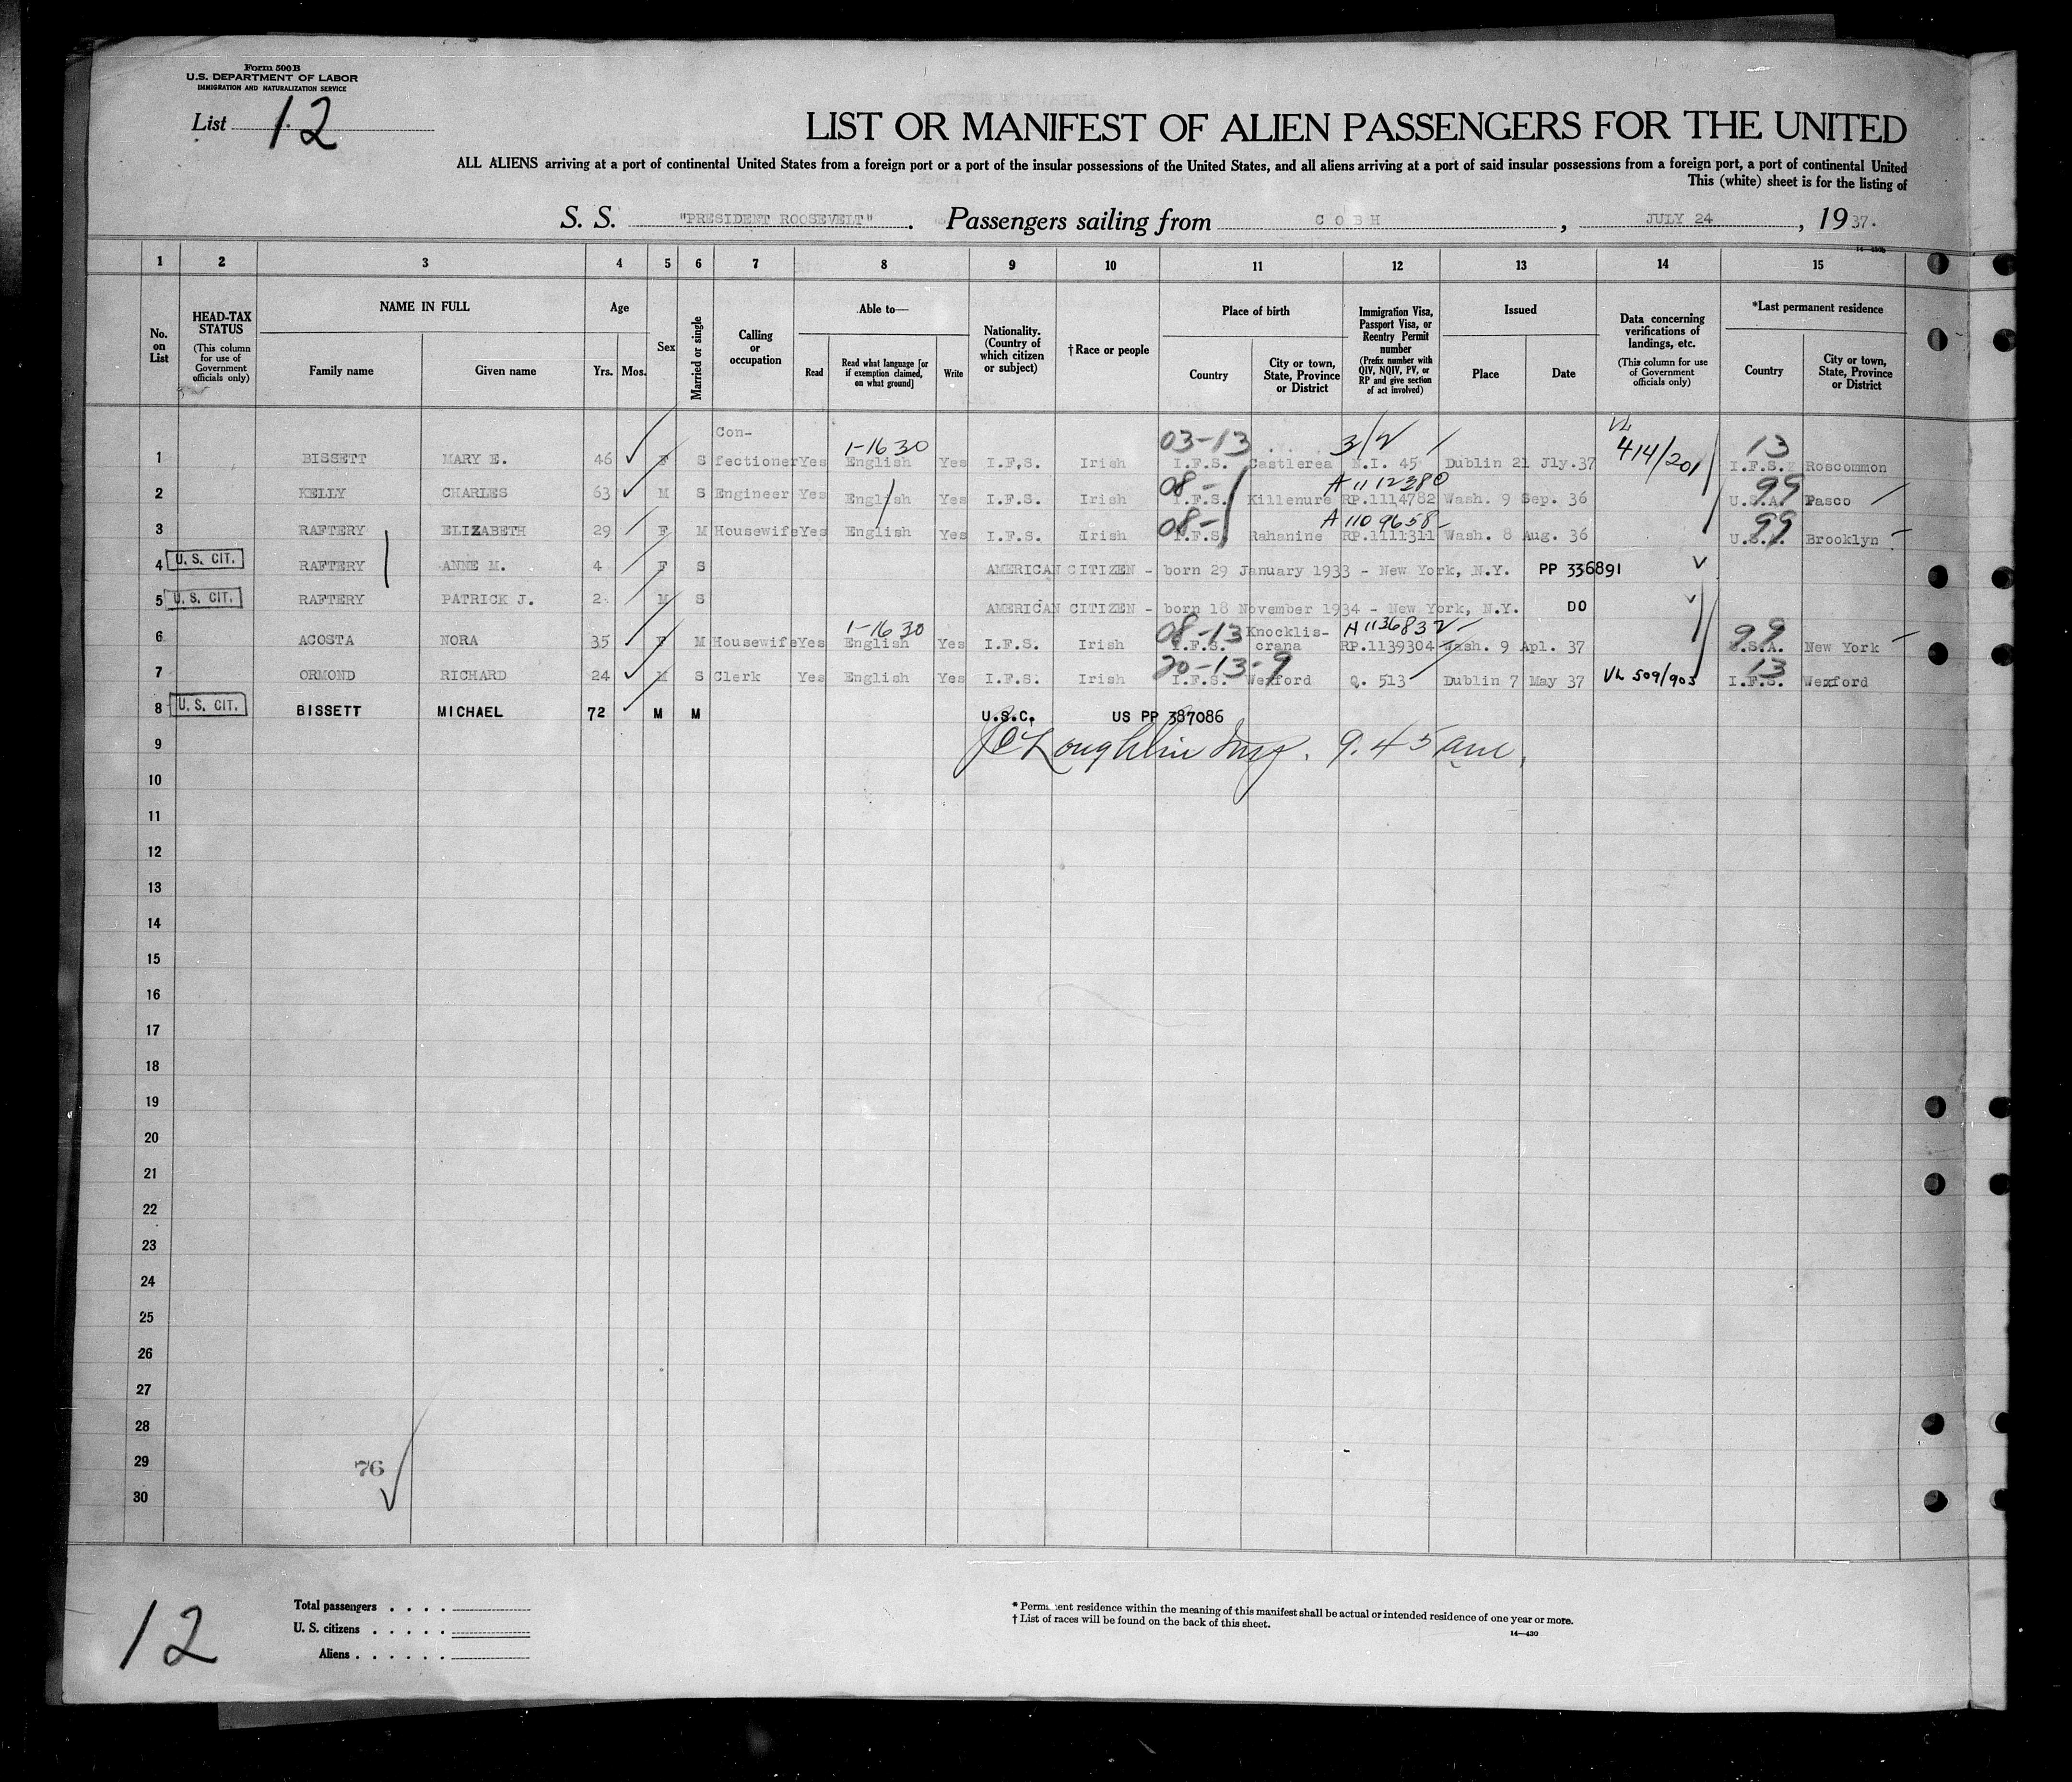 Form 500B
U.S. DEPARTMENT OF LABOR
IMMIGRATION AND NATURALIZATION SERVICE
List 12
LIST OR MANIFEST OF ALIEN PASSENGERS FOR THE UNITED
ALL ALIENS arriving at a port of continental United States from a foreign port or a port of the insular possessions of the United States, and all aliens arriving at a port of said insular possessions from a foreign port, a port of continental United
This (white) sheet is for the listing of
S. S. "PRESIDENT ROOSEVELT". Passengers sailing from COBH, JULY 24, 1937.
1 2 3 4 5 6 7 8 9 10 11 12 13 14 15
No. on List
HEAD-TAX STATUS (This column for use of Government officials only)
NAME IN FULL
Family name Given name
Age
Yrs. Mos.
Sex
Married or single
Calling or occupation
Able to—
Read
Read what language [or if exemption claimed, on what ground]
Write
Nationality. (Country of which citizen or subject)
†Race or people
Place of birth
Country
City or town, State, Province or District
Immigration Visa, Passport Visa, or Reentry Permit number (Prefix number with QIV, NQIV, PV, or RP and give section of act involved)
Issued
Place Date
Data concerning verifications of landings, etc. (This column for use of Government officials only)
*Last permanent residence
Country
City or town, State, Province or District
Con-
1-1630 03-13 3/2 VL 414/201 13
1 BISSETT MARY E. 46 F S fectioner Yes English Yes I.F.S. Irish I.F.S. Castlerea N.I. 45 Dublin 21 Jly.37 I.F.S. Roscommon
08- A1112380 99
2 KELLY CHARLES 63 M S Engineer Yes English Yes I.F.S. Irish I.F.S. Killenure RP.1114782 Wash. 9 Sep. 36 U.S.A. Pasco
08- A1109658- 99
3 RAFTERY ELIZABETH 29 F M Housewife Yes English Yes I.F.S. Irish I.F.S. Rahanine RP.1111311 Wash. 8 Aug. 36 U.S.A. Brooklyn
4 U. S. CIT. RAFTERY ANNE M. 4 F S AMERICAN CITIZEN - born 29 January 1933 - New York, N.Y. PP 336891
5 U. S. CIT. RAFTERY PATRICK J. 2 M S AMERICAN CITIZEN - born 18 November 1934 - New York, N.Y. DO
1-1630 08-13 Knocklis- A1136832 99
6 ACOSTA NORA 35 F M Housewife Yes English Yes I.F.S. Irish I.F.S. crana RP.1139304 Wash. 9 Apl. 37 U.S.A. New York
20-13-9 13
7 ORMOND RICHARD 24 M S Clerk Yes English Yes I.F.S. Irish I.F.S. Wexford Q. 513 Dublin 7 May 37 VL 509/903 I.F.S. Wexford
8 U. S. CIT. BISSETT MICHAEL 72 M M U.S.C. US PP 387086
9 9.45 am
10
11
12
13
14
15
16
17
18
19
20
21
22
23
24
25
26
27
28
29 76
30
12
Total passengers . . . .
U. S. citizens . . . . .
Aliens . . . . . .
* Permanent residence within the meaning of this manifest shall be actual or intended residence of one year or more.
† List of races will be found on the back of this sheet.
14—430